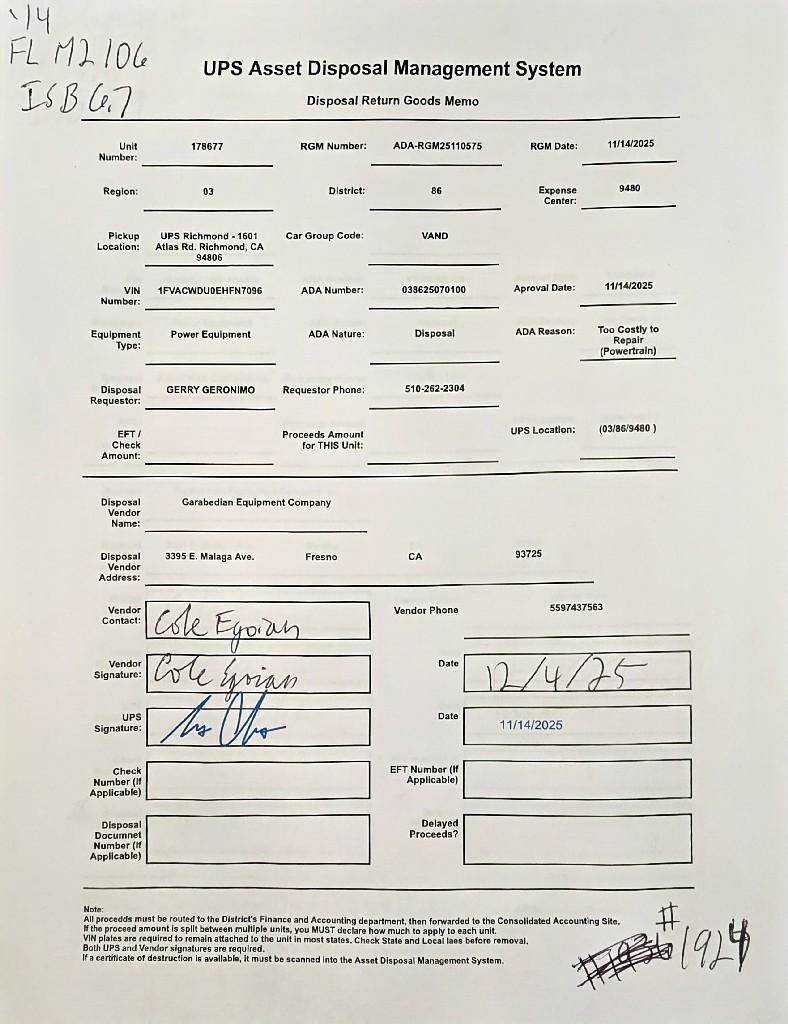 '14
FL M2 106
ISB 6.7
UPS Asset Disposal Management System
Disposal Return Goods Memo
Unit Number: 178677 RGM Number: ADA-RGM25110575 RGM Date: 11/14/2025
Region: 03 District: 86 Expense Center: 9480
Pickup Location: UPS Richmond - 1601 Atlas Rd. Richmond, CA 94806 Car Group Code: VAND
VIN Number: 1FVACWDU0EHFN7096 ADA Number: 038625070100 Aproval Date: 11/14/2025
Equipment Type: Power Equipment ADA Nature: Disposal ADA Reason: Too Costly to Repair (Powertrain)
Disposal Requestor: GERRY GERONIMO Requestor Phone: 510-262-2304
EFT / Check Amount: Proceeds Amount for THIS Unit: UPS Location: (03/86/9480 )
Disposal Vendor Name: Garabedian Equipment Company
Disposal Vendor Address: 3395 E. Malaga Ave. Fresno CA 93725
Vendor Contact: Cole Egoian Vendor Phone 5597437563
Vendor Signature: Cole Egoian Date 12/4/25
UPS Signature: Date 11/14/2025
Check Number (If Applicable) EFT Number (If Applicable)
Disposal Documnet Number (If Applicable) Delayed Proceeds?
Note:
All procedds must be routed to the District's Finance and Accounting department, then forwarded to the Consolidated Accounting Site.
If the proceed amount is split between multiple units, you MUST declare how much to apply to each unit.
VIN plates are required to remain attached to the unit in most states. Check State and Local laes before removal.
Both UPS and Vendor signatures are required.
If a certificate of destruction is available, it must be scanned into the Asset Disposal Management System.
#1924